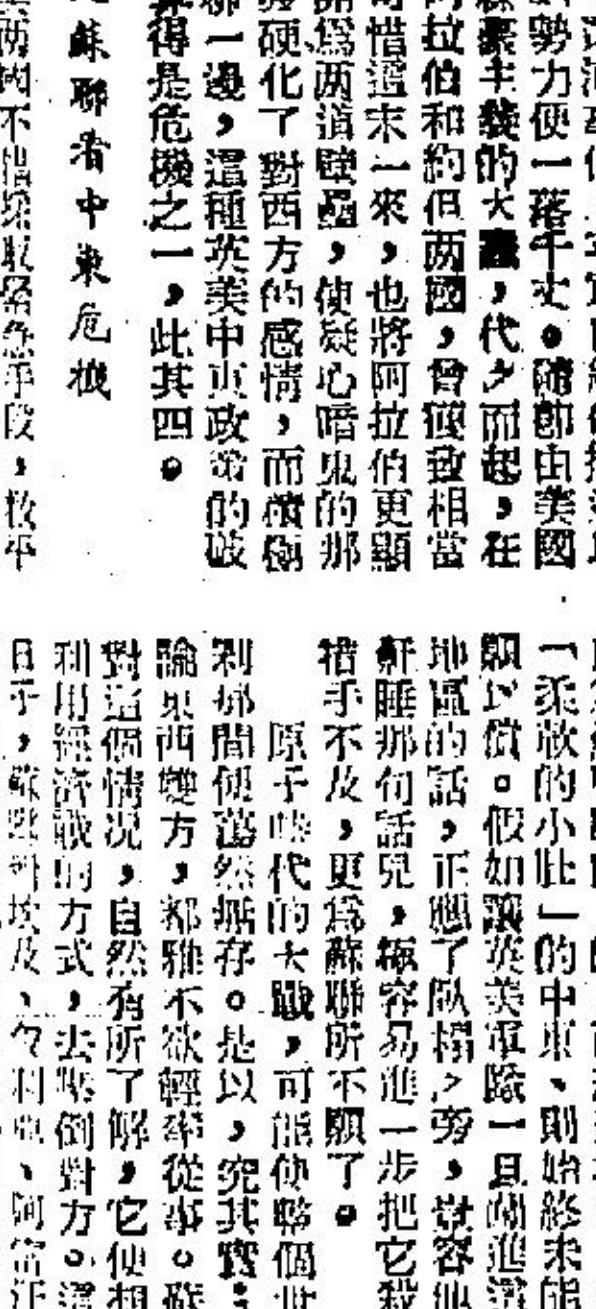 勢力便一落千丈。隨即由美國
的大蟲,代之而起,在
阿拉伯和約但两國,曾使致相當
可惜這末一來,也將阿拉伯更顯
開爲两道壁壘,使疑心暗鬼的那
硬化了對西方的感情,而積極
聯一邊,這種英美中東政命的歧
算得是危機之一,此其四。
從蘇聯看中東危機
英两國不惜採取緊急手段,救平
一柔敵的小肚」的中東、則始終未能
願以償。假如讓英美軍隊一旦開進這
地區的話,正應了臥榻之旁,豈容他
鼾睡那句話兒,極容易進一步把它殺
措手不及,更爲蘇聯所不願了。
原子時代的大戰,可能使整個世
刹那間便蕩然無存。是以,究其實:
論東西雙方,都雅不欲輕率從事。蘇
對這個情况,自然有所了解,它便想
利用經濟戰的方式,去壓倒對方。這
日子,蘇聯對埃及、叙利亞、阿富汗